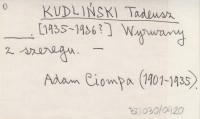 KUDLIŃSKI Tadeusz
[1935-1936?] Wyrwany
z szeregu. —
Adam Ciompa (1901-1935).